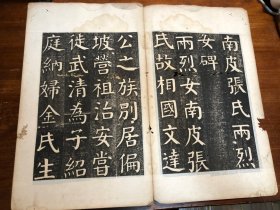 南皮張氏兩烈
女碑
兩烈女南皮張
氏故相國文達
公之族別居偏
坡營祖治安嘗
徙武清為子紹
庭納婦金氏生